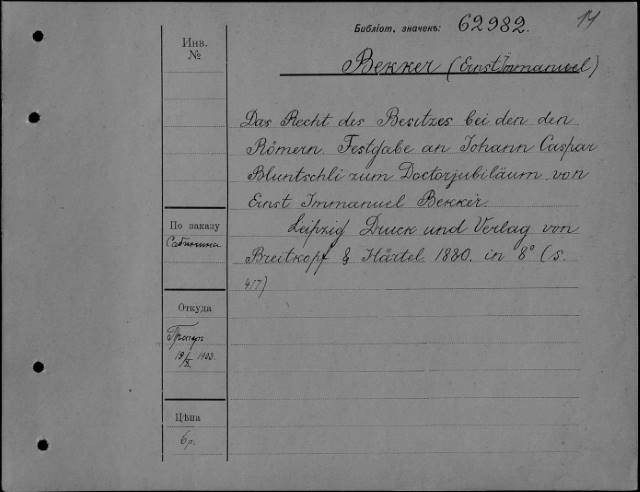 Библіот. значекъ: 62982. 11
Инв.
№
Bekker (Ernst Immanuel)
Das Recht des Besitzes bei den den
Römern. Festgabe an Johann Caspar
Bluntschli zum Doctorjubiläum von
Ernst Immanuel Bekker.
Leipzig Druck und Verlag von
Breitkopf & Härtel 1880. in 8° (s.
417)
По заказу
Сабинина
Откуда
19/X 1903.
Цѣна
6 р.